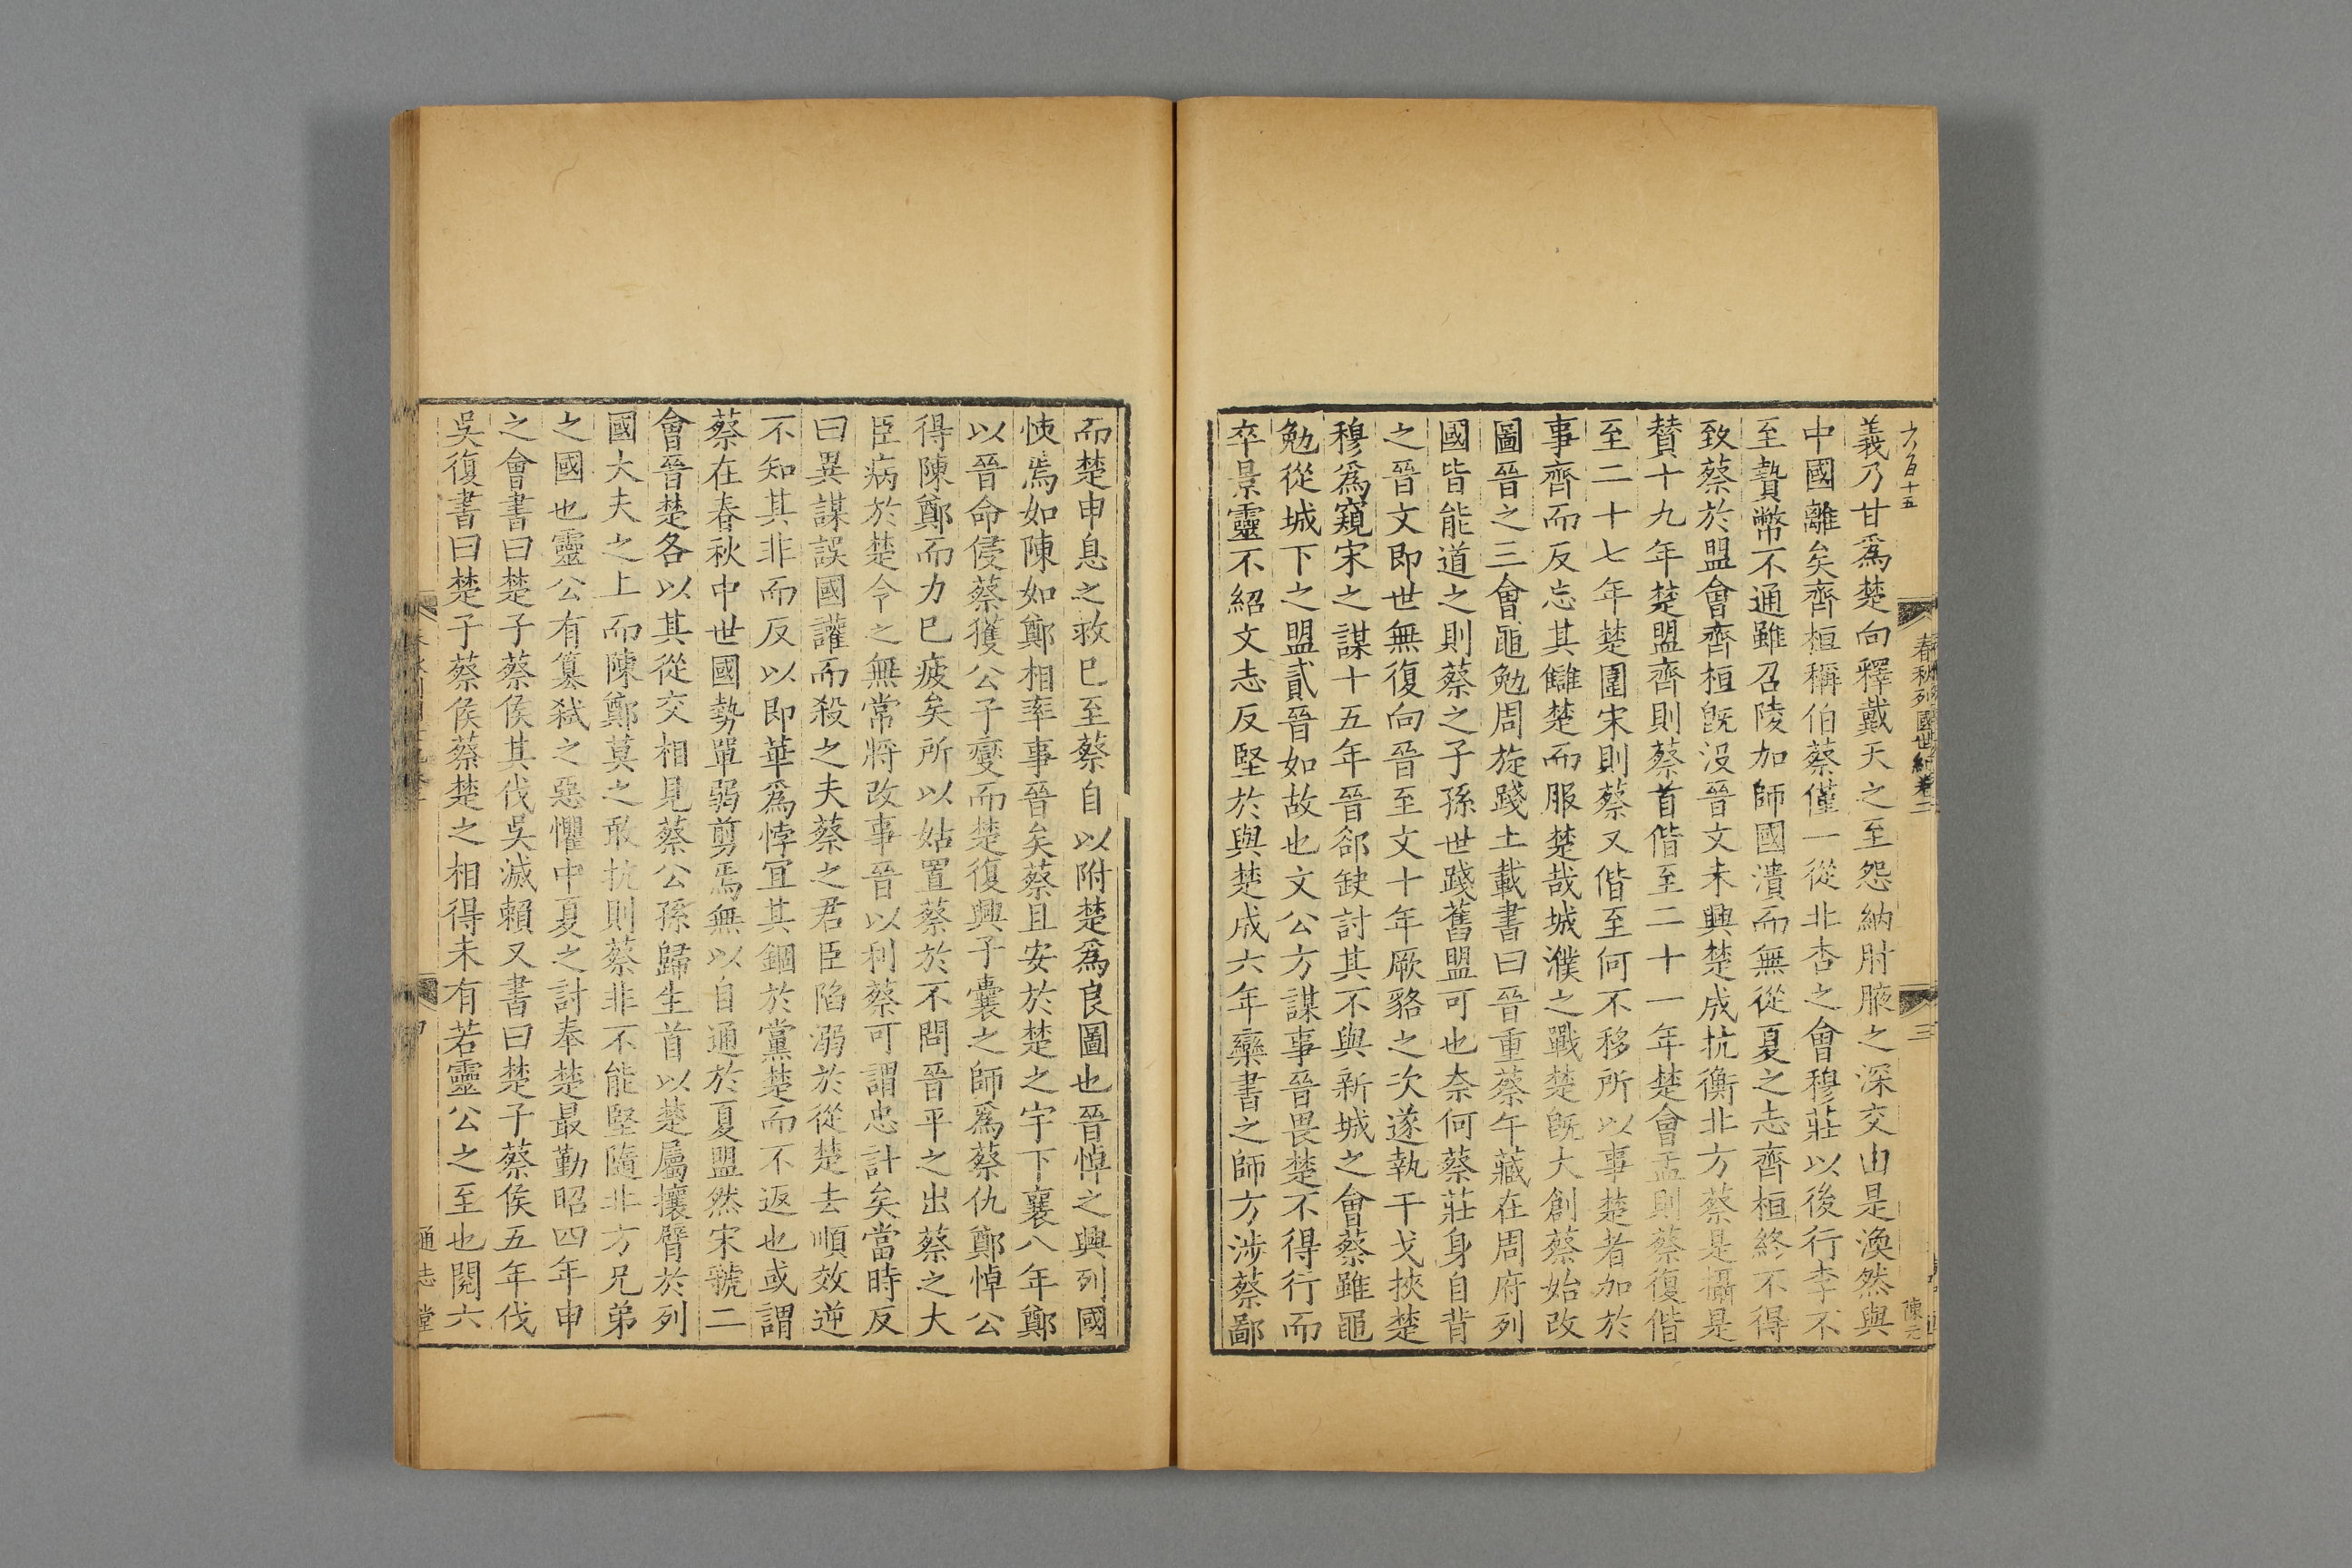 六百十五
春秋列國世紀卷二
三
陳元
義乃甘爲楚向釋戴天之至怨納肘腋之深交由是渙然與
中國離矣齊桓稱伯蔡僅一從北杏之會穆莊以後行李不
至贄幣不通雖召陵加師國潰而無從夏之志齊桓終不得
致蔡於盟會齊桓旣沒晉文未興楚成抗衡非方蔡是懾是
贊十九年楚盟齊則蔡首偕至二十一年楚會盂則蔡復偕
至二十七年楚圍宋則蔡又偕至何不移所以事楚者加於
事齊而反忘其讎楚而服楚哉城濮之戰楚旣大創蔡始改
圖晉之三會黽勉周旋踐土載書曰晉重蔡午藏在周府列
國皆能道之則蔡之子孫世踐舊盟可也奈何蔡莊身自背
之晉文即世無復向晉至文十年厥貉之次遂執干戈挾楚
穆爲窺宋之謀十五年晉郤缺討其不與新城之會蔡雖黽
勉從城下之盟貳晉如故也文公方謀事晉畏楚不得行而
卒景靈不紹文志反堅於與楚成六年欒書之師方涉蔡鄙
而楚申息之救已至蔡自以附楚爲良圖也晉悼之興列國
悏焉如陳如鄭相率事晉矣蔡且安於楚之宇下襄八年鄭
以晉命侵蔡獲公子變而楚復興子囊之師爲蔡仇鄭悼公
得陳鄭而力已疲矣所以姑置蔡於不問晉平之出蔡之大
臣病於楚令之無常將改事晉以利蔡可謂忠計矣當時反
曰異謀誤國讙而殺之夫蔡之君臣陷溺於從楚去順效逆
不知其非而反以即華爲悖宜其錮於黨楚而不返也或謂
蔡在春秋中世國勢單弱剪焉無以自通於夏盟然宋虢二
會晉楚各以其從交相見蔡公孫歸生首以楚屬攘臂於列
國大夫之上而陳鄭莫之敢抗則蔡非不能堅隨非方兄弟
之國也靈公有簒弒之惡懼中夏之討奉楚最勤昭四年申
之會書曰楚子蔡侯其伐吳滅賴又書曰楚子蔡侯五年伐
吳復書曰楚子蔡侯蔡楚之相得未有若靈公之至也閱六
四
通志堂